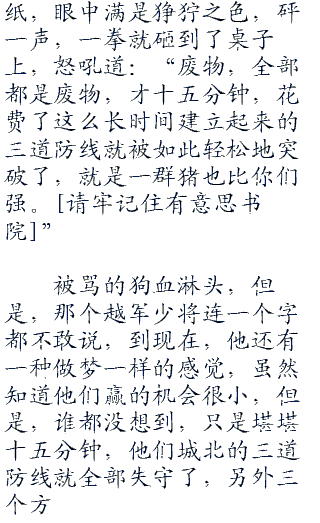 纸，眼中满是狰狞之色，砰
一声，一拳就砸到了桌子
上，怒吼道：“废物，全部
都是废物，才十五分钟，花
费了这么长时间建立起来的
三道防线就被如此轻松地突
破了，就是一群猪也比你们
强。[请牢记住有意思书
院]”
被骂的狗血淋头，但
是，那个越军少将连一个字
都不敢说，到现在，他还有
一种做梦一样的感觉，虽然
知道他们赢的机会很小，但
是，谁都没想到，只是堪堪
十五分钟，他们城北的三道
防线就全部失守了，另外三
个方